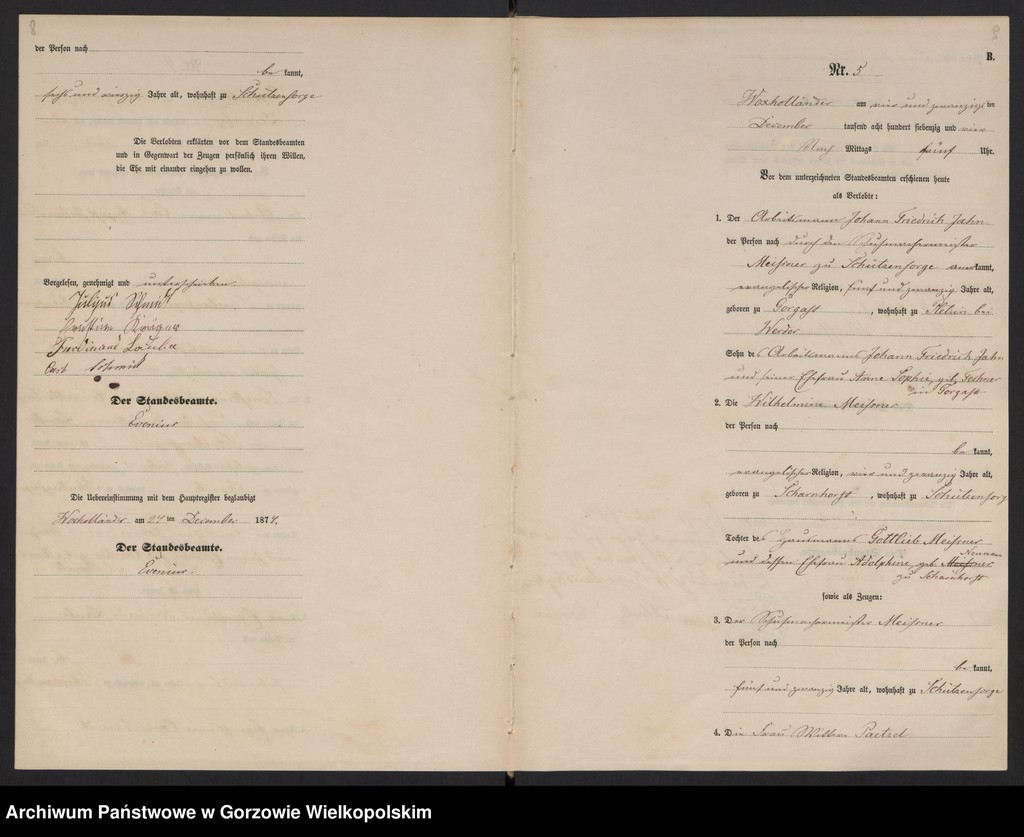 8
der Person nach
be kannt,
sechs und vierzig Jahre alt, wohnhaft zu Schützensorge
Die Verlobten erklärten vor dem Standesbeamten
und in Gegenwart der Zeugen persönlich ihren Willen,
die Ehe mit einander eingehen zu wollen.
Vorgelesen, genehmigt und unterschrieben.
Julijus Schmidt
Krüger
Ferdinand
Carl Schmidt
Der Standesbeamte.
Evenius
Die Uebereinstimmung mit dem Hauptregister beglaubigt
Woxholländer am 24 ten December 1874.
Der Standesbeamte.
Evenius.
9
B.
Nr. 5
Woxholländer am vier und zwanzigsten
December tausend acht hundert siebenzig und vier
Nach Mittags fünf Uhr.
Vor dem unterzeichneten Standesbeamten erschienen heute
als Verlobte:
1. Der Arbeitsmann Johann Friedrich Jahn
der Person nach durch den Schuhmachermeister
Meissner zu Schützensorge anerkannt,
evangelischer Religion, fünf und zwanzig Jahre alt,
geboren zu Gorgast, wohnhaft zu bei
Werder
Sohn des Arbeitsmanns Johann Friedrich Jahn
und seiner Ehefrau Anne Sophie geb.
in Gorgast
2. Die Wilhelmine Meissner
der Person nach
be kannt,
evangelischer Religion, vier und zwanzig Jahre alt,
geboren zu Scharnhorst, wohnhaft zu Schützensorge
Tochter des Gottlieb Meissner
und dessen Ehefrau Adolphine, geb. Meissner
zu Scharnhorst
sowie als Zeugen:
3. Der Schuhmachermeister Meissner
der Person nach
be kannt,
fünf und zwanzig Jahre alt, wohnhaft zu Schützensorge
4. Die Frau Paetzel
Archiwum Państwowe w Gorzowie Wielkopolskim